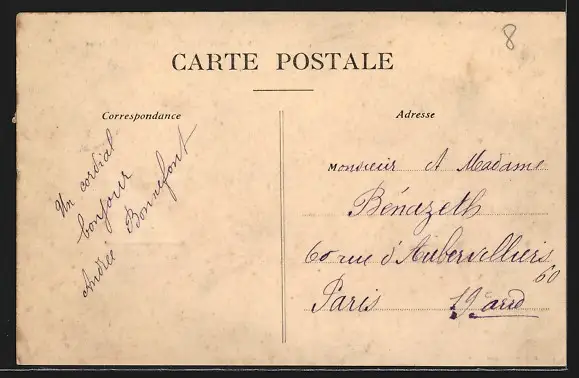 8
CARTE POSTALE
Correspondance
Adresse
Un cordial
bonjour
Andrée Bonnefont
Monsieur et Madame
Bénazeth
60 rue d'Aubervilliers
60
Paris 19e arrd